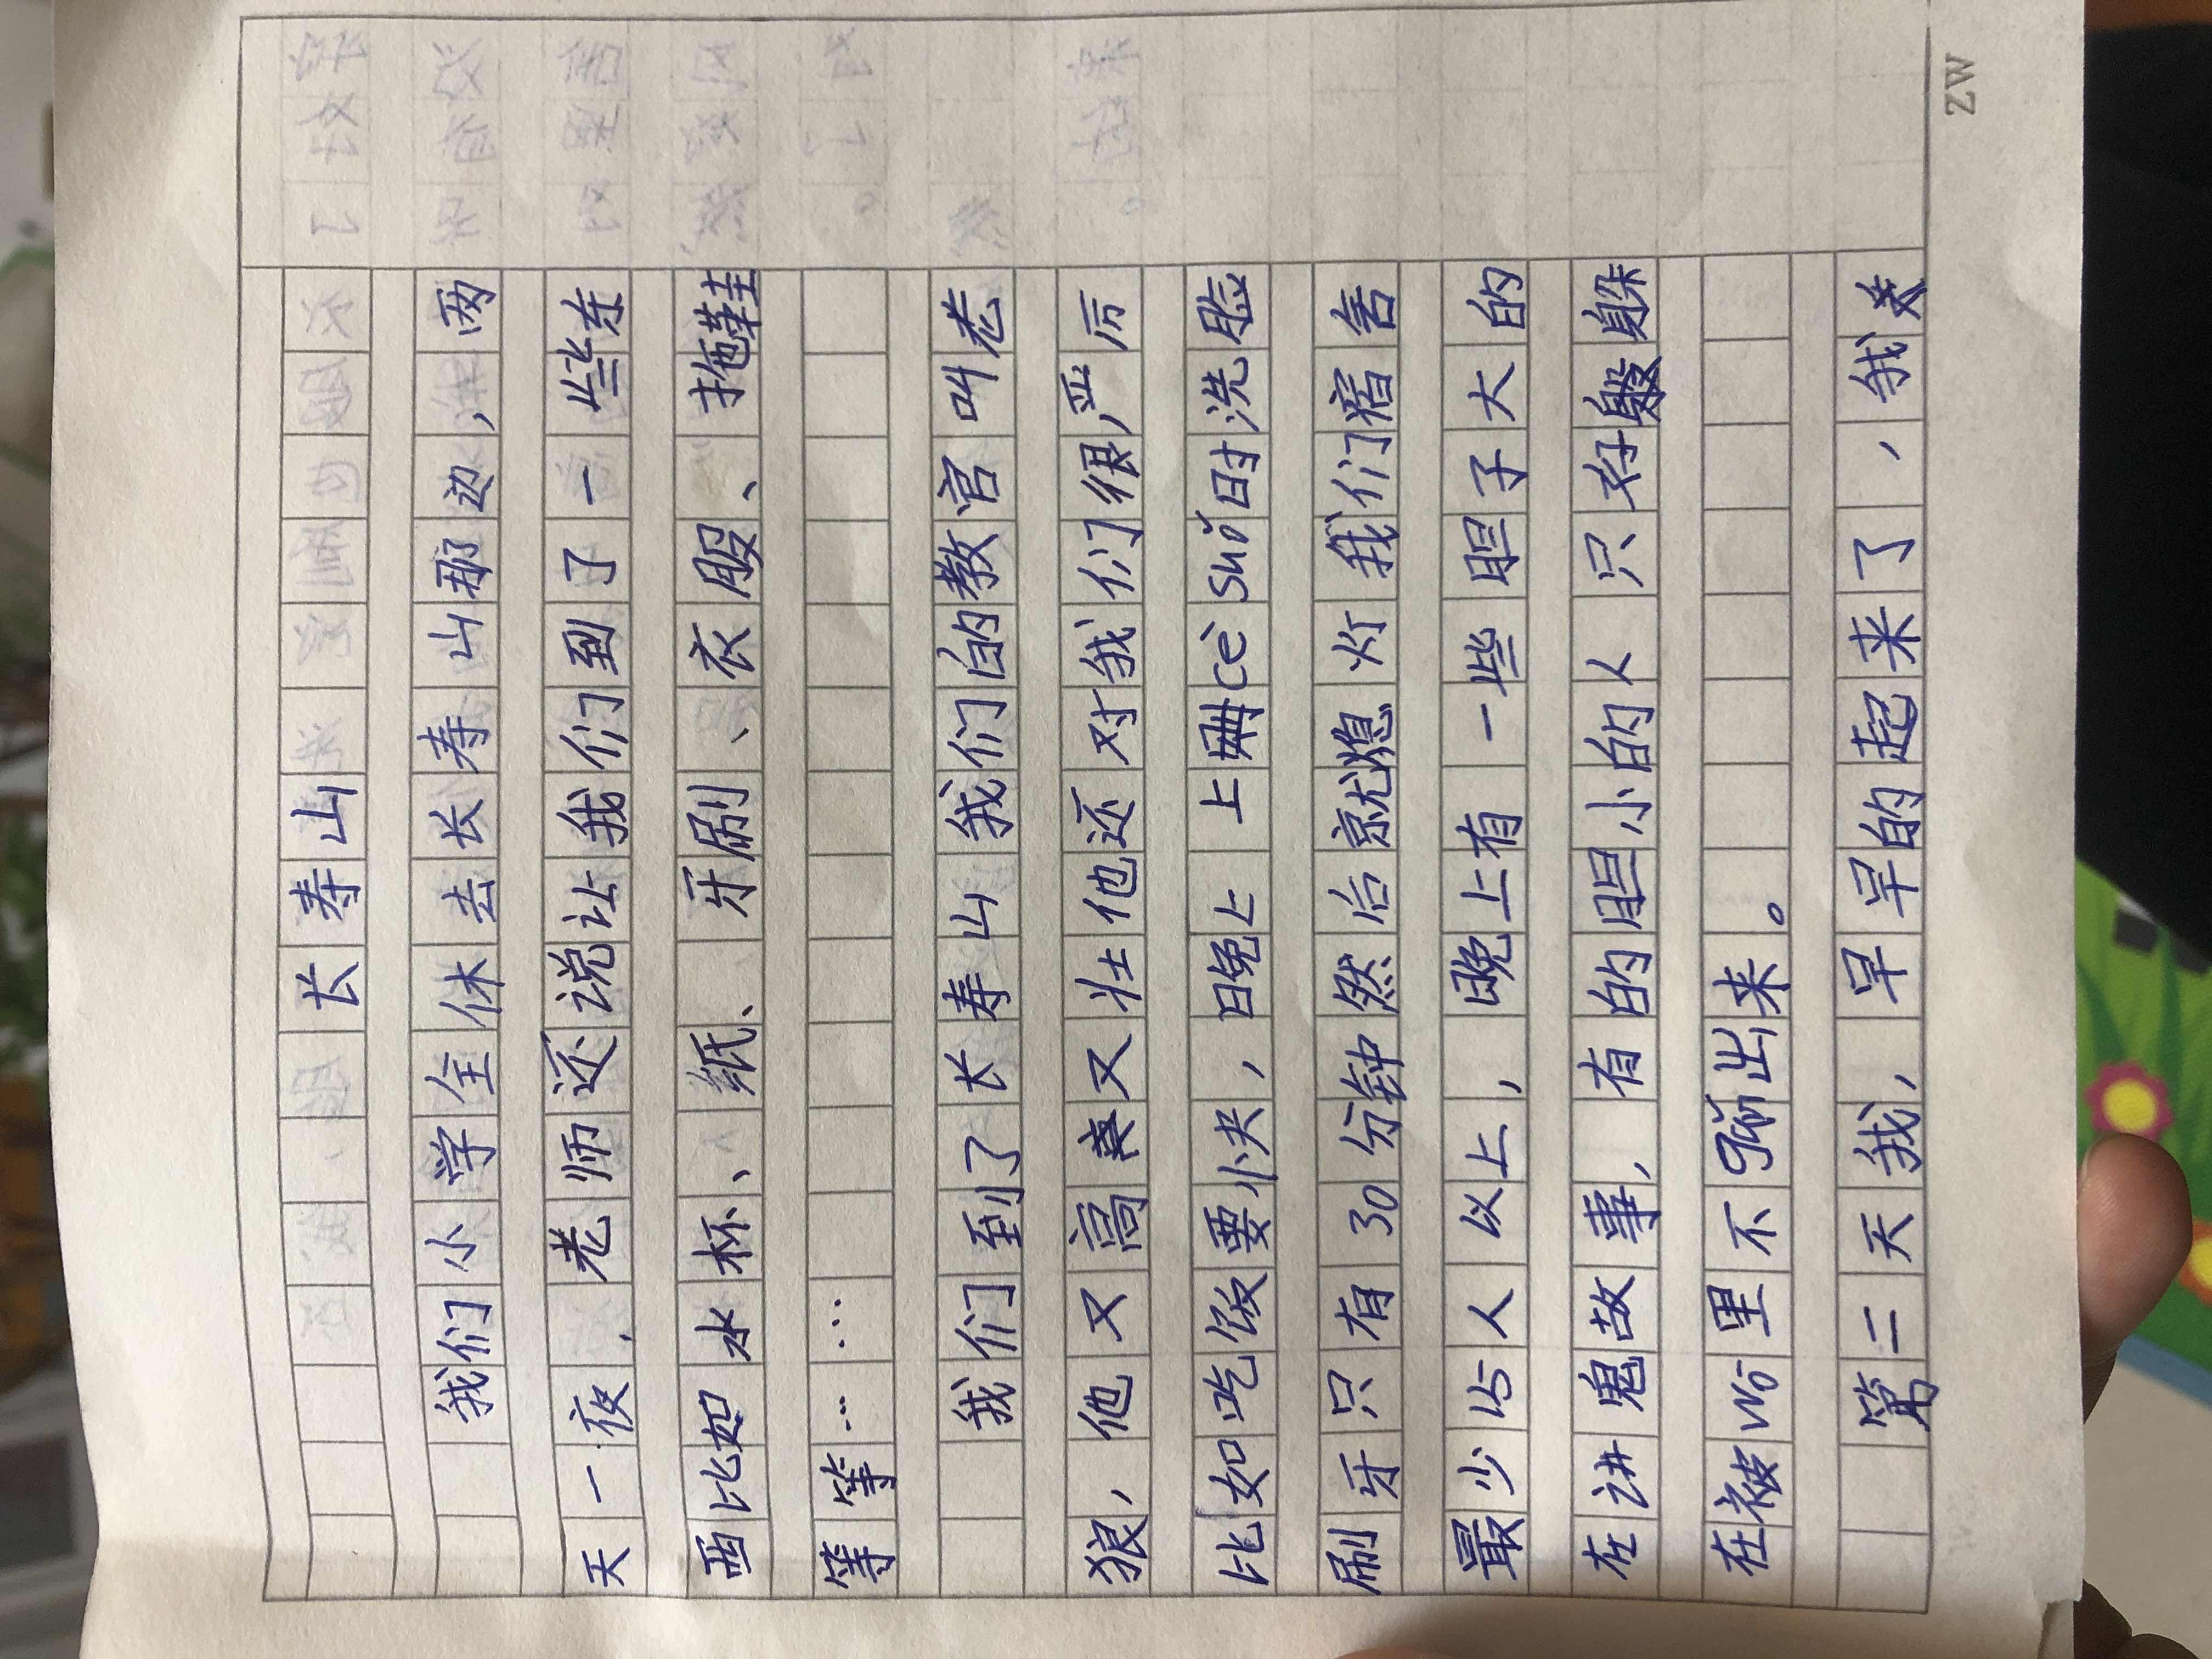 长寿山
我们小学全休去长寿山那边,两
天一夜.老师还说让我们到了一些东
西比如水杯、纸、牙刷、衣服、拖鞋
等等……
我们到了长寿山我们的教官叫老
狼,他又高又壮他还对我们很严历
比如吃饭要快,晚上上cè suǒ时洗脸
刷牙只有30分钟然后就熄灯我们宿舍
最少15人以上,晚上有一些胆子大的
在讲鬼故事,有的胆小的人只好躲
在被wō里不敢出来。
第二天我,早早的起来了,我
ZW